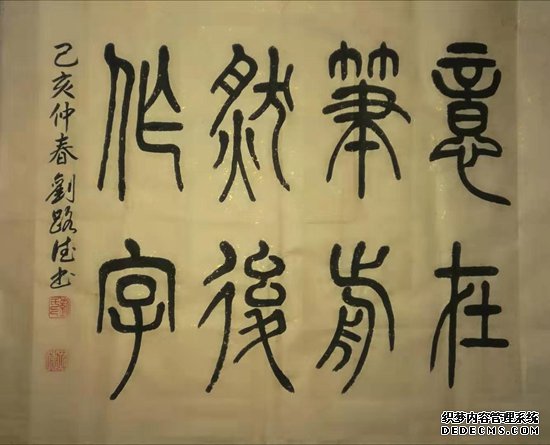 意在
筆前
然後
作字
己亥仲春劉路德书
织梦内容管理系统
DEDECMS.COM